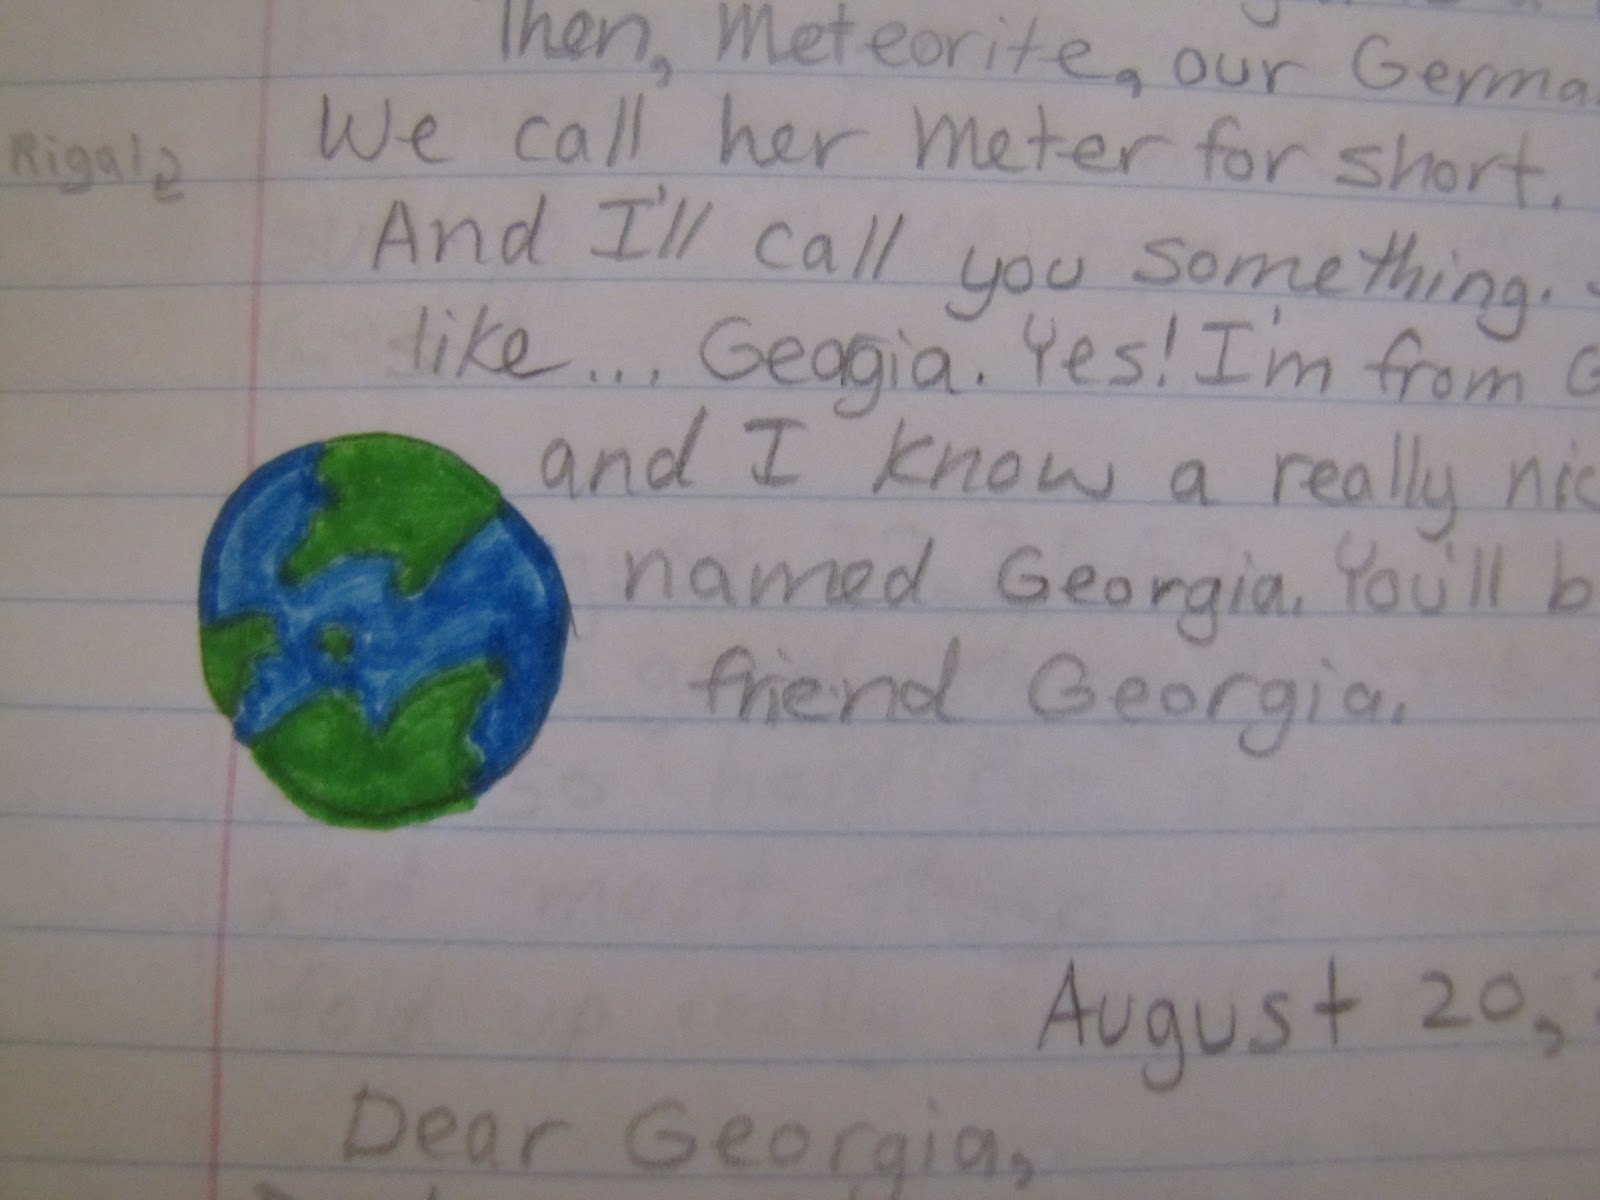 Then, Meteorite, our Germa
We call her Meter for short.
Rigal 2
And I'll call you something.
like... Geogia. Yes! I'm from G
and I know a really nic
named Georgia. You'll b
friend Georgia.
August 20,
Dear Georgia,